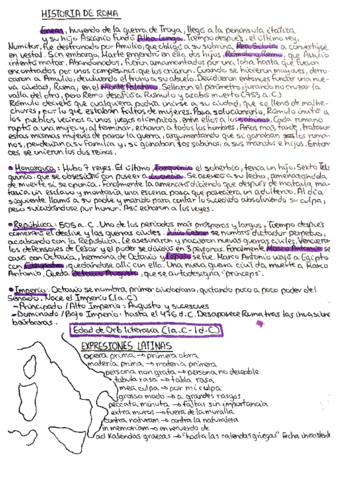 HISTORIA DE ROMA
Eneas, huyendo de la guerra de Troya, llegó a la península itálica
y su hijo Ascanio fundó Alba Longa. Tiempo después, el último rey,
Numitor, fue destronado por Amulio, que obligó a su sobrina, Rea Silvia a convertirse
en vestal. Sin embargo, Marte engendró en ella dos hijos, Rómulo y Remo, que Amulio
intentó matar. Abandonados, fueron amamantados por una loba, hasta que fueron
encontrados por unos campesinos que los criaron. Cuando se hicieron mayores, derro-
caron a Amulio, devolviendo el trono a su abuelo. Decidieron entonces fundar una nue-
va ciudad, Roma, en el Monte Palatino. Sellaron el perímetro jurando no cruzar la
valla del otro, pero Remo desafió a Rómulo y acabó muerto (753 a.C)
Rómulo decretó que cualquiera podía unirse a su ciudad, que se llenó de malhe-
chores, por lo que estaban faltos de mujeres. Para solucionarlo, Rómulo invitó a
los pueblos vecinos a unos juegos olímpicos, entre ellos a los sabinos. Cada romano
raptó a una mujer y, al terminar, echaron a todos los hombres. Años más tarde,
estas mismas mujeres de pararon la guerra, argumentando que si ganaban los roma-
nos, perderían a su familia y, si ganaban los sabinos, a sus maridos e hijos. Enton-
ces se unieron los dos reinos.
• Monarquía: Hubo 7 reyes. El último Tarquinio el soberbio, tenía un hijo, Sexto
que se obsesionó con poseer a Lucrecia. Se acercó a su lecho, amenazándola
de muerte si se oponía. Finalmente la amenazó diciendo que después de matarla, ma-
taría un esclavo y montaría una escena para que pareciera un adulterio. Al día
siguiente llamó a su padre y marido para contar lo sucedido absolviendo su culpa,
pero suicidándose por honor. Así echaron a los reyes.
• República: 509 a. C. Uno de los períodos más prósperos y largos. Tiempo después
comenzó el declive y las guerras civiles. Julio César se nombró dictador perpetuo,
acabando con la República. Le asesinaron y nacieron nuevas guerras civiles. Vencieron
los defensores de César y el poder se dividió en 3 personas. Finalmente Marco Antonio se
casó con Octavia, hermana de Octavio y Lépido se fue. Marco Antonio viajó a Egipto
con Cleopatra quedándose allí con ella. Una nueva guerra civil da muerte a Marco
Antonio. Queda Octavio Augusto, que se autodesigna "princeps".
• Imperio: Octavio se nombra primer ciudadano, quitando poco a poco poder del
Senado. Nace el Imperio (1 a.C)
– Principado / Alto Imperio: Augusto y sucesores
– Dominado / Bajo Imperio: hasta el 476 d.C. Desaparece Roma tras las invasiones
bárbaras.
Edad de Oro Literaria (1 a.C - 1 d.C)
EXPRESIONES LATINAS
opera prima → primera obra
materia prima → materia primera
persona non grata → persona no deseable
tabula rasa → tabla rasa
mea culpa → por mi culpa
grosso modo → a grandes rasgos
peccata minuta → faltas sin importancia
extra muros → fuera de la muralla
contra naturam → contra la naturaleza
in memoriam → en recuerdo de
ad Kalendas graecas → "hasta las calendas griegas"